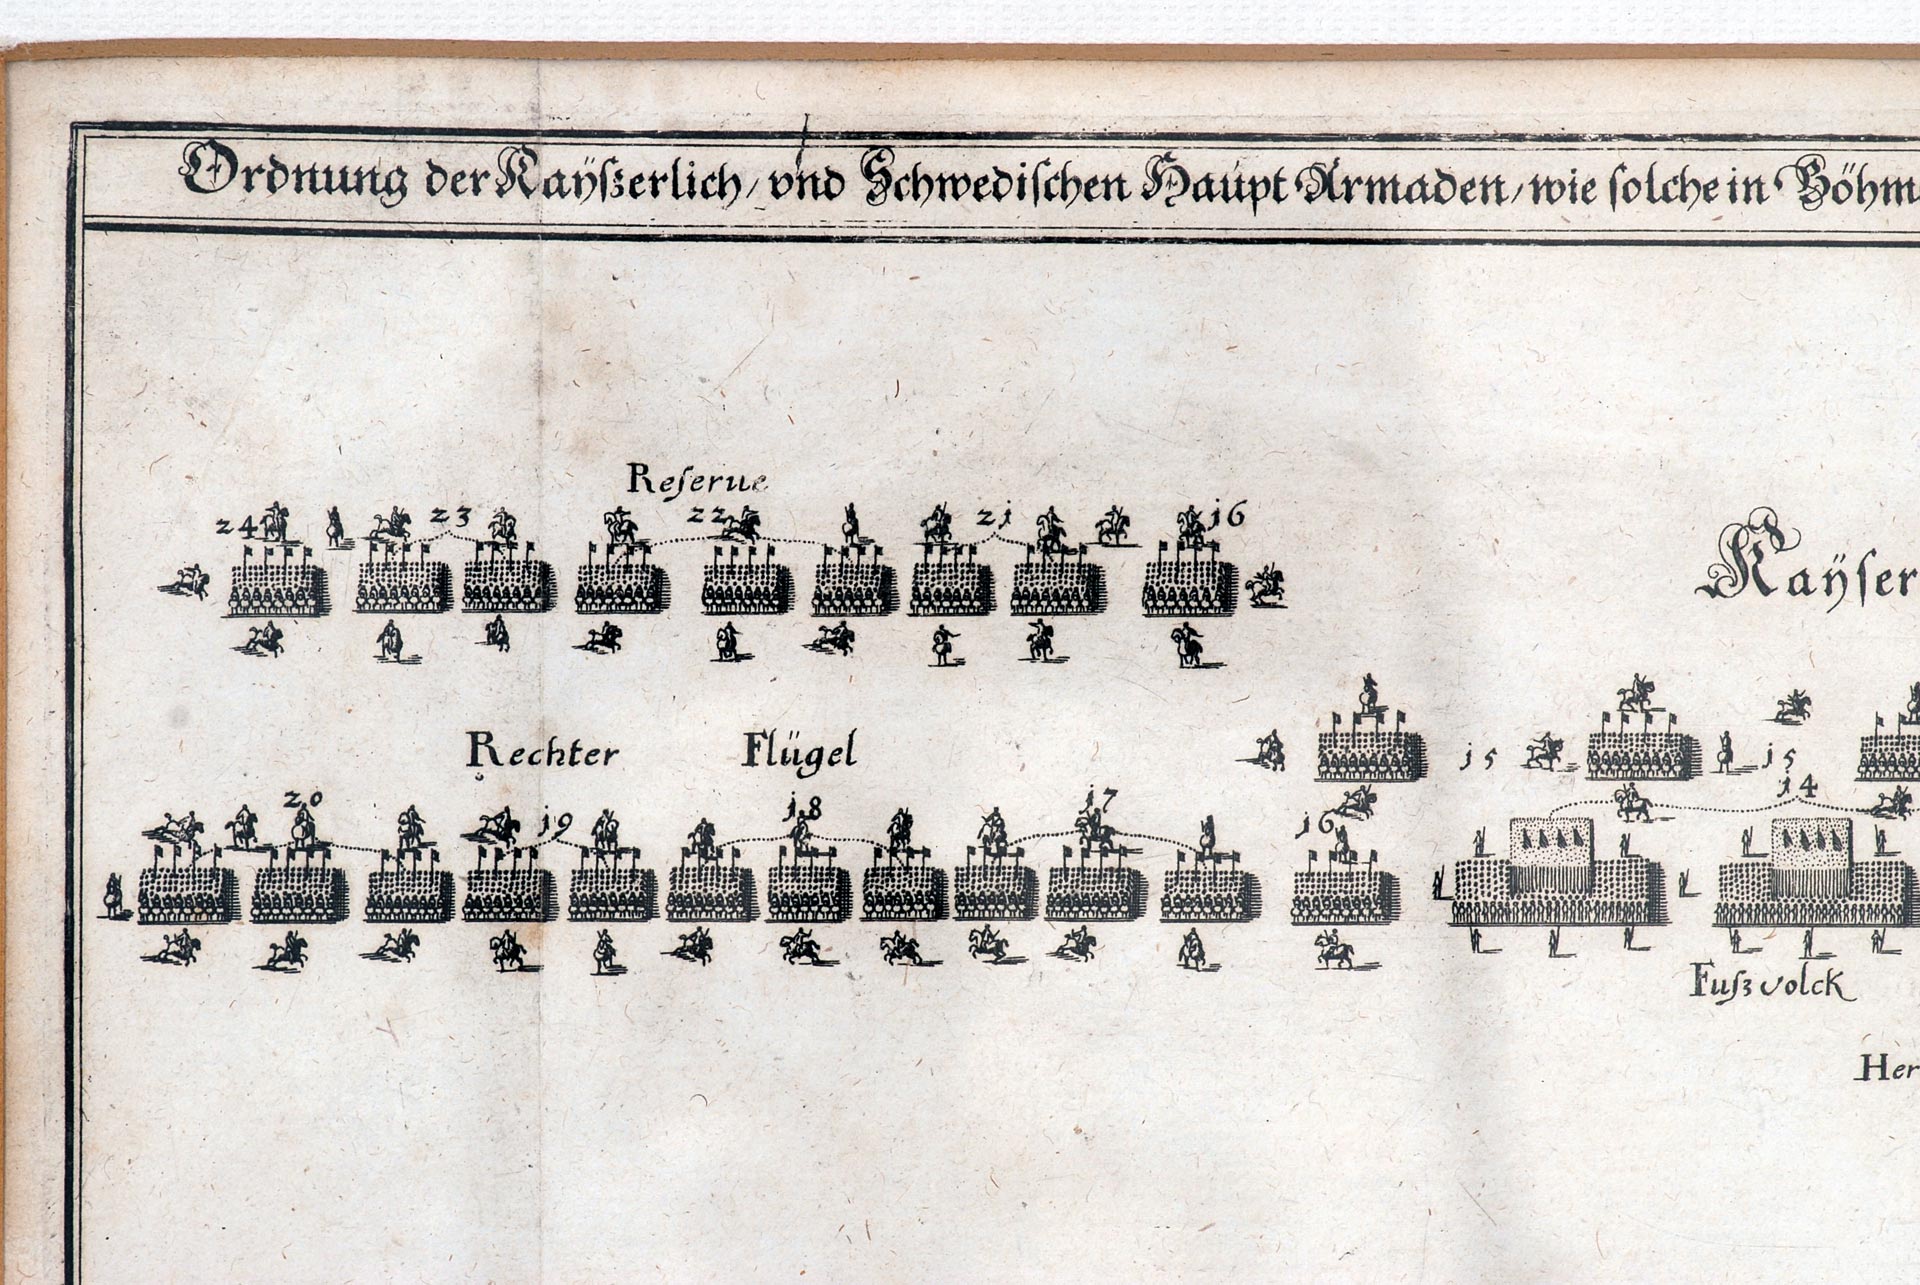 Ordnung der Kaÿſzerlich/ vnd Schwediſchen Haupt Armaden/ wie ſolche in Böhm
Reſerue
24 23 22 21 16
Kaÿſer
Rechter Flügel
15 15
14
20 19 18 17 16
Fuſzvolck
Her